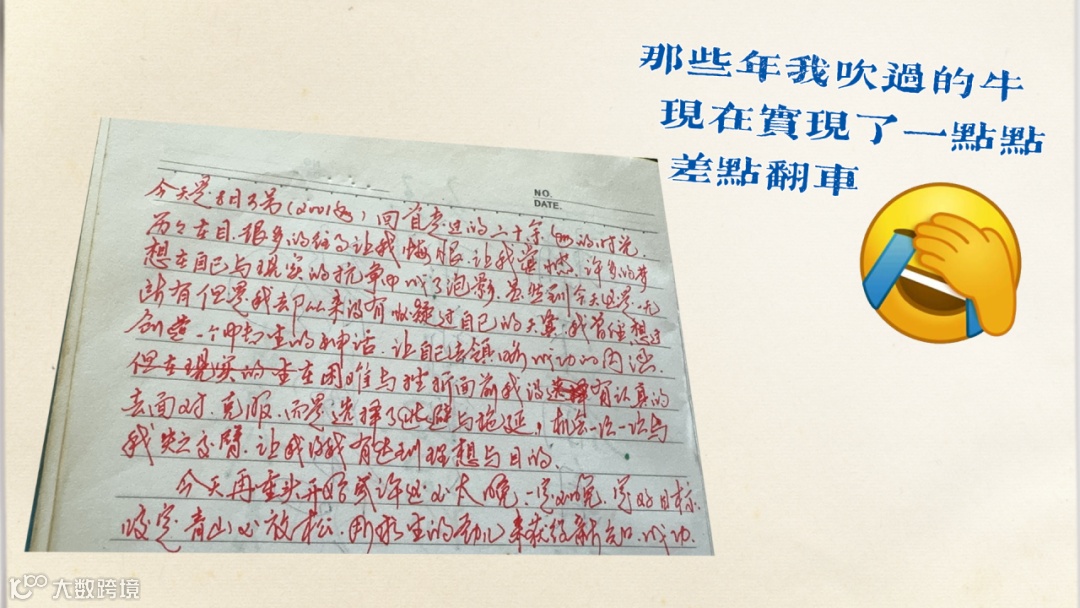 那些年我吹過的牛
現在實現了一點點
差點翻車
NO.
DATE.
今天是8月3号(2001年)回首走过的二十余年的时光
历历在目.很多的往事让我悔恨.让我蓝然.许多的梦
想在自己与现实的抗争中成了泡影.虽然到今天还是一无
所有但是我却从来没有怀疑过自己的天赋.我曾经想过
创造一个中专生的神话.让自己去领略成功的内涵.
但在现实的重在困难与挫折面前我没有认真的
去面对.克服.而是选择了逃避与拖延,机会一次一次与
我失之交臂.让我没有达到理想与目的.
今天再重头开始或许还不太晚.一定不晚.定好目标.
咬定青山不放松.用求生的劲儿来获得新知.成功.
大数跨境